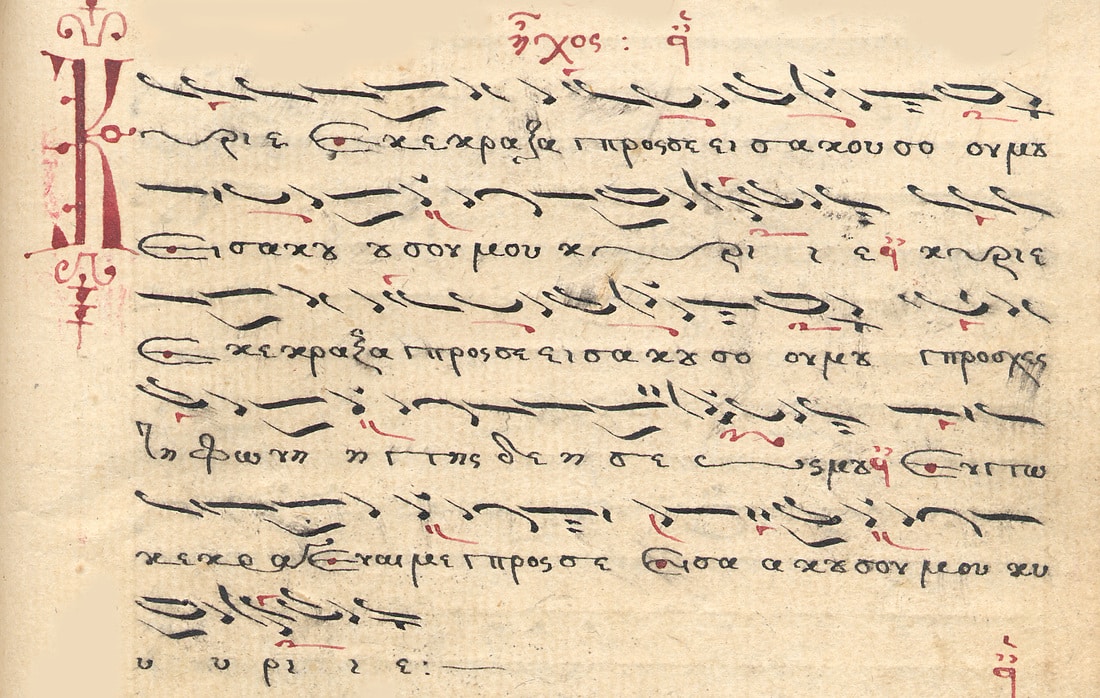 ἦχος : q
Κυριε Εκεκραξα προς σε εισακουσο ουμȣ
Εισακȣ ȣσουμου κυρι ι ε q κυριε
Εκεκραξα προς σε εισακȣσο ουμȣ προσχες
τη φωνη η της δεησε ως μȣ q Εν τω
κεκραγεναι με προς σε Εισα ακȣσου μου κυ
υ υ ρι ι ε :
q